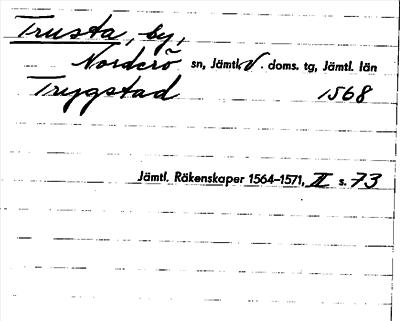 Trusta, by,
Norderö sn, Jämtl. V. doms. tg, Jämtl. län
Trygstad 1568
Jämtl. Räkenskaper 1564–1571, II s. 73